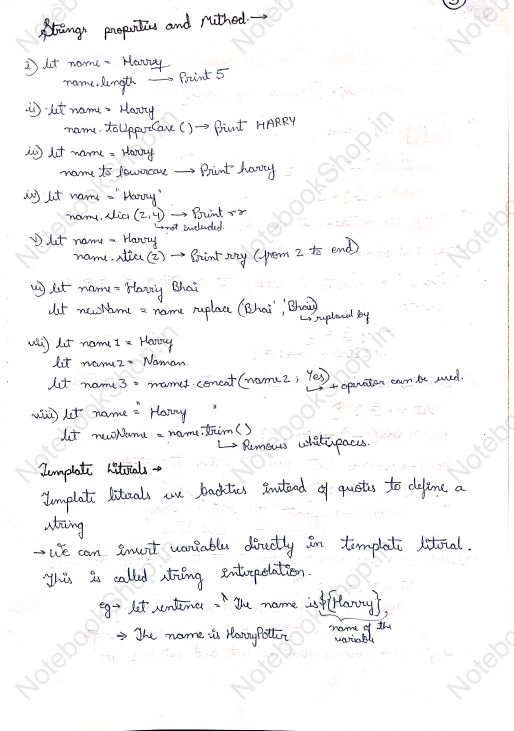 Strings properties and Method. →
i) let name = Harry
name.length → Print 5
ii) let name = Harry
name.toUpperCase () → Print HARRY
iii) let name = Harry
name to lowercase → Print harry
iv) let name = "Harry"
name.slice (2,4) → Print rr
↳ not included.
v) let name = Harry
name.slice (2) → Print rry (from 2 to end)
vi) let name = Harry Bhai
let newName = name replace (Bhai', 'Bhau)
↳ replaced by
vii) let name1 = Harry
let name2 = Naman.
let name3 = name1.concat(name2, Yes)
↳ + operator can be used.
viii) let name = " Harry "
let newName = name.trim()
↳ Removes whitespaces.
Template Literals →
Template literals use backtics instead of quotes to define a
string
→ We can insert variables directly in template literal.
This is called string interpolation.
eg → let sentence = ` The name is ${Harry},
name of the
variable
→ The name is HarryPotter
NotebookShop.in